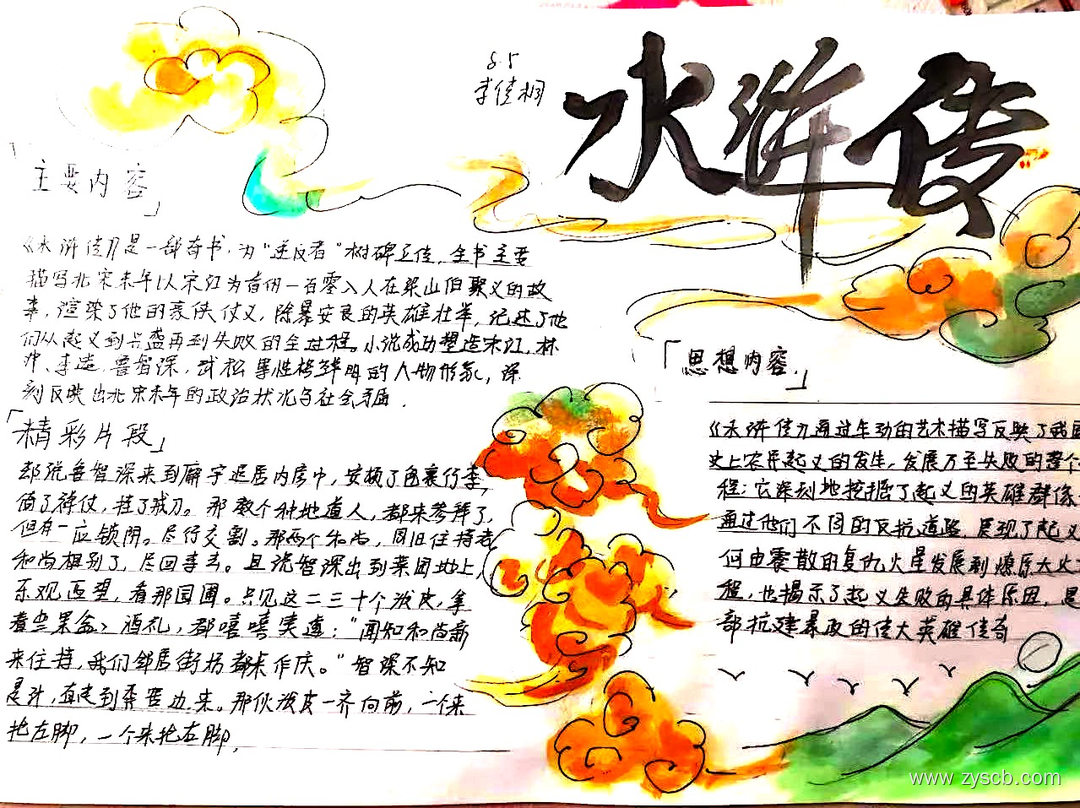 8.5
李佳桐
水浒传
「主要内容」
《水浒传》是一部奇书，为“造反者”树碑立传，全书主要
描写北宋末年以宋江为首的一百零八人在梁山伯聚义的故
事，渲染了他的豪侠仗义，除暴安良的英雄壮举，记述了他
们从起义到兴盛再到失败的全过程。小说成功塑造宋江，林
冲，李逵，鲁智深，武松等性格鲜明的人物形象，深
刻反映出北宋末年的政治状况与社会矛盾．
「精彩片段」
却说鲁智深来到廨宇退居内房中，安顿了包裹行李，
倚了禅仗，挂了戒刀。那数个种地道人，都来参拜了，
但有一应锁阴。尽行交割。那两个和尚，同旧住持老
和尚相别了，尽回寺去。且说智深出到菜园地上，
东观西望，看那园圃。只见这二三十个泼皮，拿
着些果盒，酒礼，都嘻嘻笑道：“闻知和尚新
来住持，我们邻居街坊都来作庆。”智深不知
是计，直走到粪窖边来。那伙泼皮一齐向前，一个来
抢左脚，一个来抢右脚，
「思想内容」
《水浒传》通过生动的艺术描写反映了我国
史上农民起义的发生，发展乃至失败的整个
程；它深刻地挖掘了起义的英雄群像
通过他们不同的反抗道路，展现了起义
何由零散的复仇火星发展到燎原大火
程，也揭示了起义失败的具体原因，是
部抗建暴政的伟大英雄传奇
www.zyscb.com